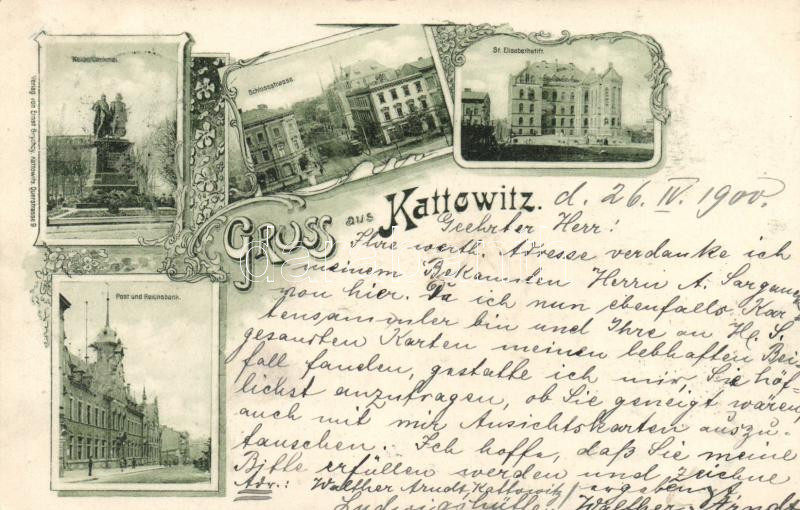 Kaiserdenkmal.
Schlossstrasse.
St. Elisabethstift.
Verlag von Ernst Kattowitz, Querstrasse 9
Gruss aus Kattowitz.
d. 26. IV. 1900.
Geehrter Herr!
Ihre werth. Adresse verdanke ich
meinem Bekannten Herrn A.
von hier. Da ich nun ebenfalls Kar-
tensammler bin und Ihre an H. S.
gesandten Karten meinen lebhaften Bei-
fall fanden, gestatte ich mir, Sie höf-
lichst anzufragen, ob Sie geneigt wären,
auch mit mir Ansichtskarten auszu-
tauschen. Ich hoffe, daß Sie meine
Bitte erfüllen werden und zeichne
Adr.: Walther Arndt, Kattowitz/ ergebenst
Ludwigshütte. Walther Arndt
Post und Reichsbank.